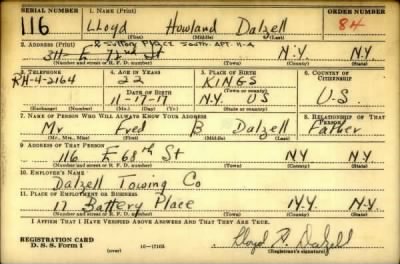 SERIAL NUMBER 1. NAME (Print) ORDER NUMBER
116 Lloyd Howland Dalzell 84
(First) (Middle) (Last)
2. ADDRESS (Print)
2 Sutton Place South - Apt. 11-A
311 E 72nd St N.Y. N.Y.
(Number and street or R. F. D. number) (Town) (County) (State)
3. TELEPHONE 4. AGE IN YEARS 5. PLACE OF BIRTH 6. COUNTRY OF CITIZENSHIP
RH-4-2164 22 KINGS
DATE OF BIRTH (Town or county)
11-17-17 N.Y. US U-S.
(Exchange) (Number) (Mo.) (Day) (Yr.) (State or country)
7. NAME OF PERSON WHO WILL ALWAYS KNOW YOUR ADDRESS 8. RELATIONSHIP OF THAT PERSON
Mr Fred B Dalzell Father
(Mr., Mrs., Miss) (First) (Middle) (Last)
9. ADDRESS OF THAT PERSON
116 E 68th St NY NY
(Number and street or R. F. D. number) (Town) (County) (State)
10. EMPLOYER'S NAME
Dalzell Towing Co
11. PLACE OF EMPLOYMENT OR BUSINESS
17 Battery Place N.Y. N.Y.
(Number and street or R. F. D. number) (Town) (County) (State)
I AFFIRM THAT I HAVE VERIFIED ABOVE ANSWERS AND THAT THEY ARE TRUE.
REGISTRATION CARD
D. S. S. Form 1 (over) 16-17105 Lloyd H. Dalzell
(Registrant's signature)